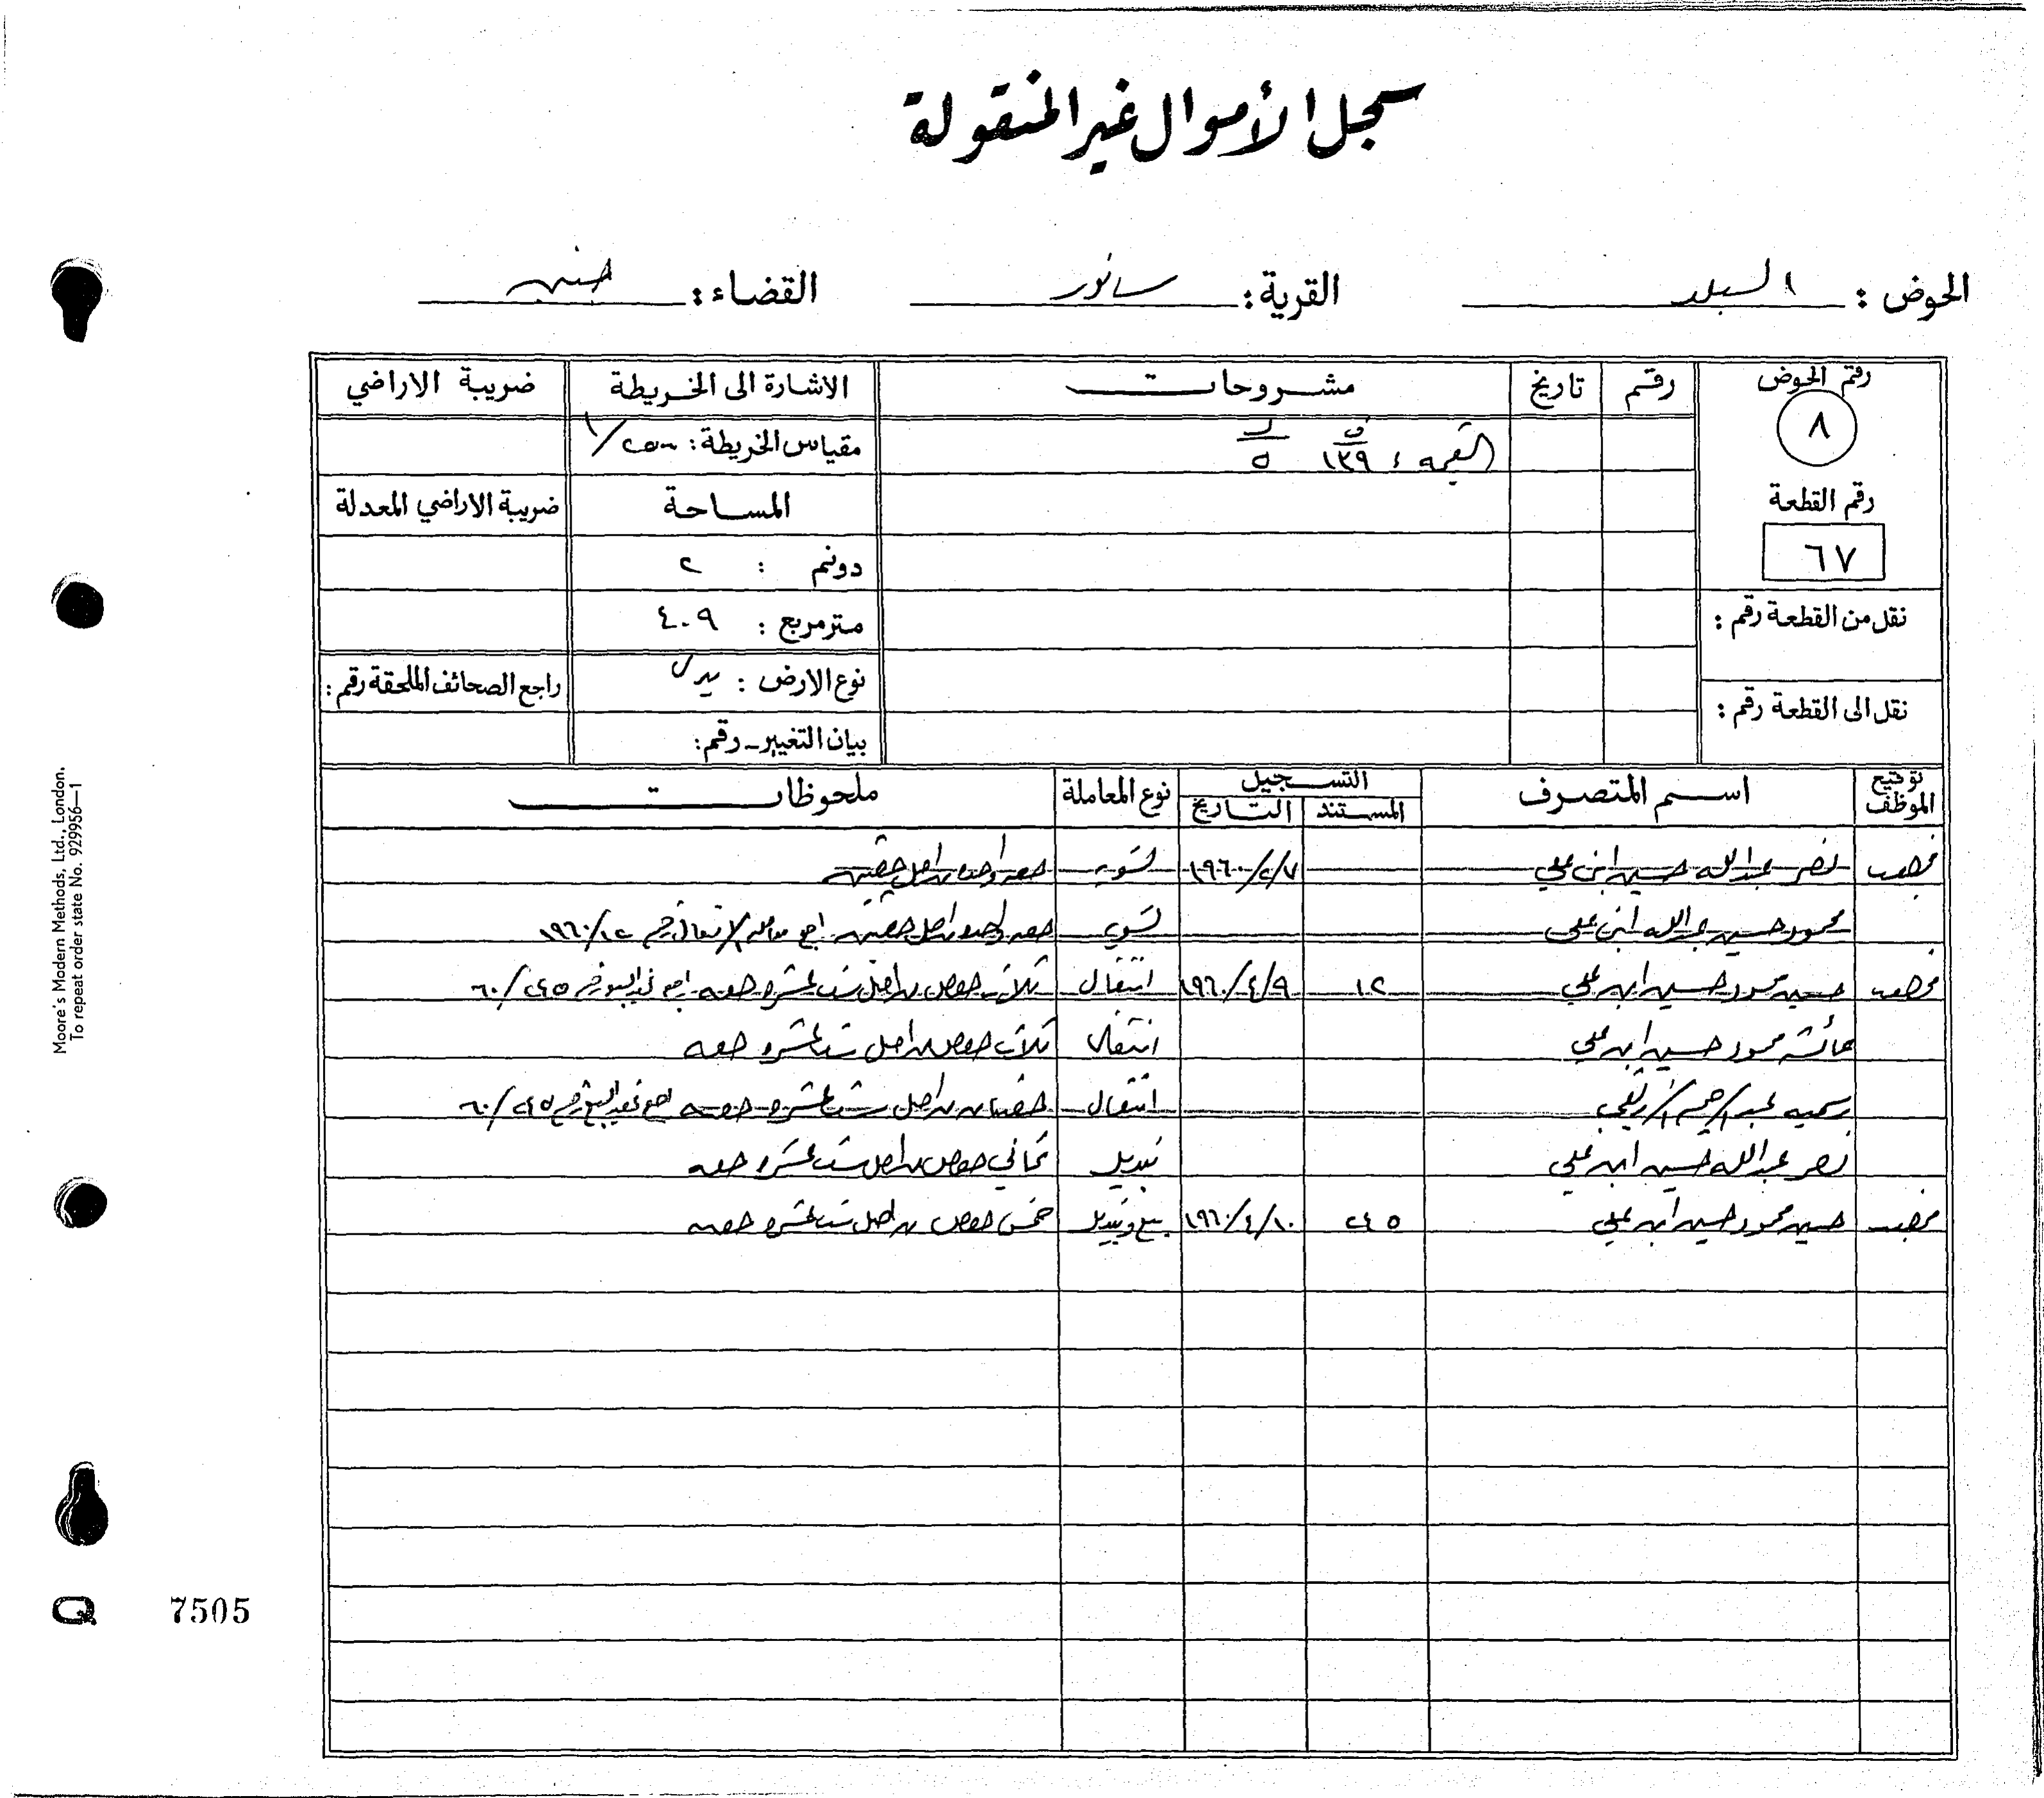 سجل الأموال غير المنقولة
الحوض : البلد القرية : سانور القضاء : جنين
رقم الحوض رقم تاريخ مشروحات الاشارة الى الخريطة ضريبة الاراضي
٨ القيمة : ١٣٩ ٥ مقياس الخريطة : ١/٢٥٠٠
رقم القطعة المساحة ضريبة الاراضي المعدلة
٦٧ دونم : ٢
نقل من القطعة رقم : متر مربع : ٤٠٩
نوع الارض : راجع الصحائف الملحقة رقم :
نقل الى القطعة رقم :
بيان التغيير - رقم :
توقيع الموظف اسم المتصرف التسجيل نوع المعاملة ملحوظات
المستند التاريخ
نصر عبدالله حسين ابن علي ١٩٦٠/٢/٧ تسويه حصه واحده من اصل حصتين
محمود حسين عبدالله ابن علي تسويه حصه واحده من اصل حصتين راجع معاملة الانتقال رقم ١٩٦٠/١٢
حسين محمود حسين ابن علي ١٢ ١٩٦٠/٤/٩ انتقال ثلاث حصص من اصل ست عشرة حصه راجع عقد البيع رقم ٦٠/٢٤٥
عائشه محمود حسين ابن علي انتقال ثلاث حصص من اصل ست عشرة حصه
رسميه عبد الرحيم انتقال حصتان من اصل ست عشرة حصه راجع عقد البيع رقم ٦٠/٢٤٥
نصر عبدالله حسين ابن علي تبديل ثماني حصص من اصل ست عشرة حصه
حسين محمود حسين ابن علي ٢٤٥ ١٩٦٠/٤/١٠ بيع وتبديل خمس حصص من اصل ست عشرة حصه
Moore's Modern Methods, Ltd., London.
To repeat order state No. 929956—1
Q 7505